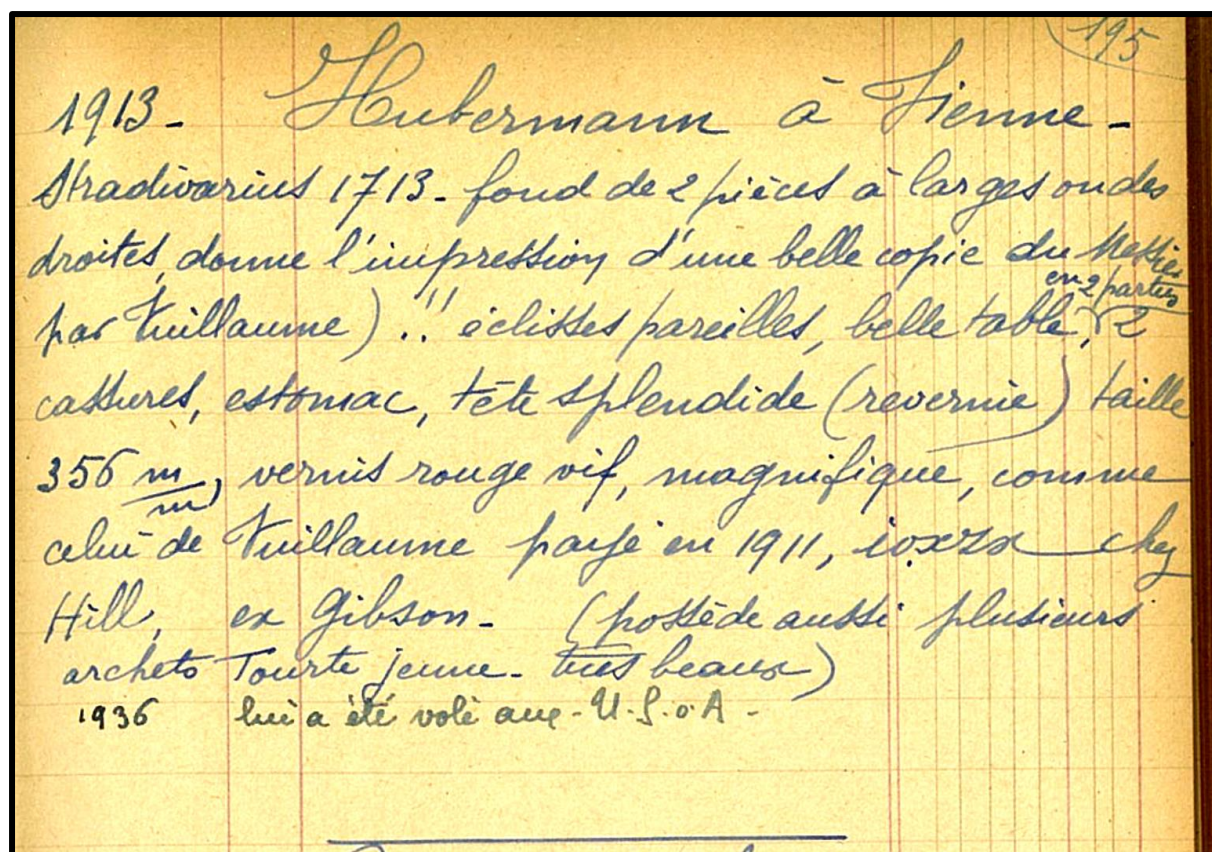 195
1913 - Hubermann à Vienne -
Stradivarius 1713 - fond de 2 pièces à larges ondes
droites, donne l'impression d'une belle copie du Messie
en 2 parties
par Vuillaume) .. !! éclisses pareilles, belle table, 2
cassures, estomac, tête splendide (revernie) taille
356 m/m, vernis rouge vif, magnifique, comme
celui de Vuillaume payé en 1911, ioxzx chez
Hill, ex Gibson - (possède aussi plusieurs
archets Tourte jeune - très beaux)
1936 lui a été volé aux - U.S.o.A -